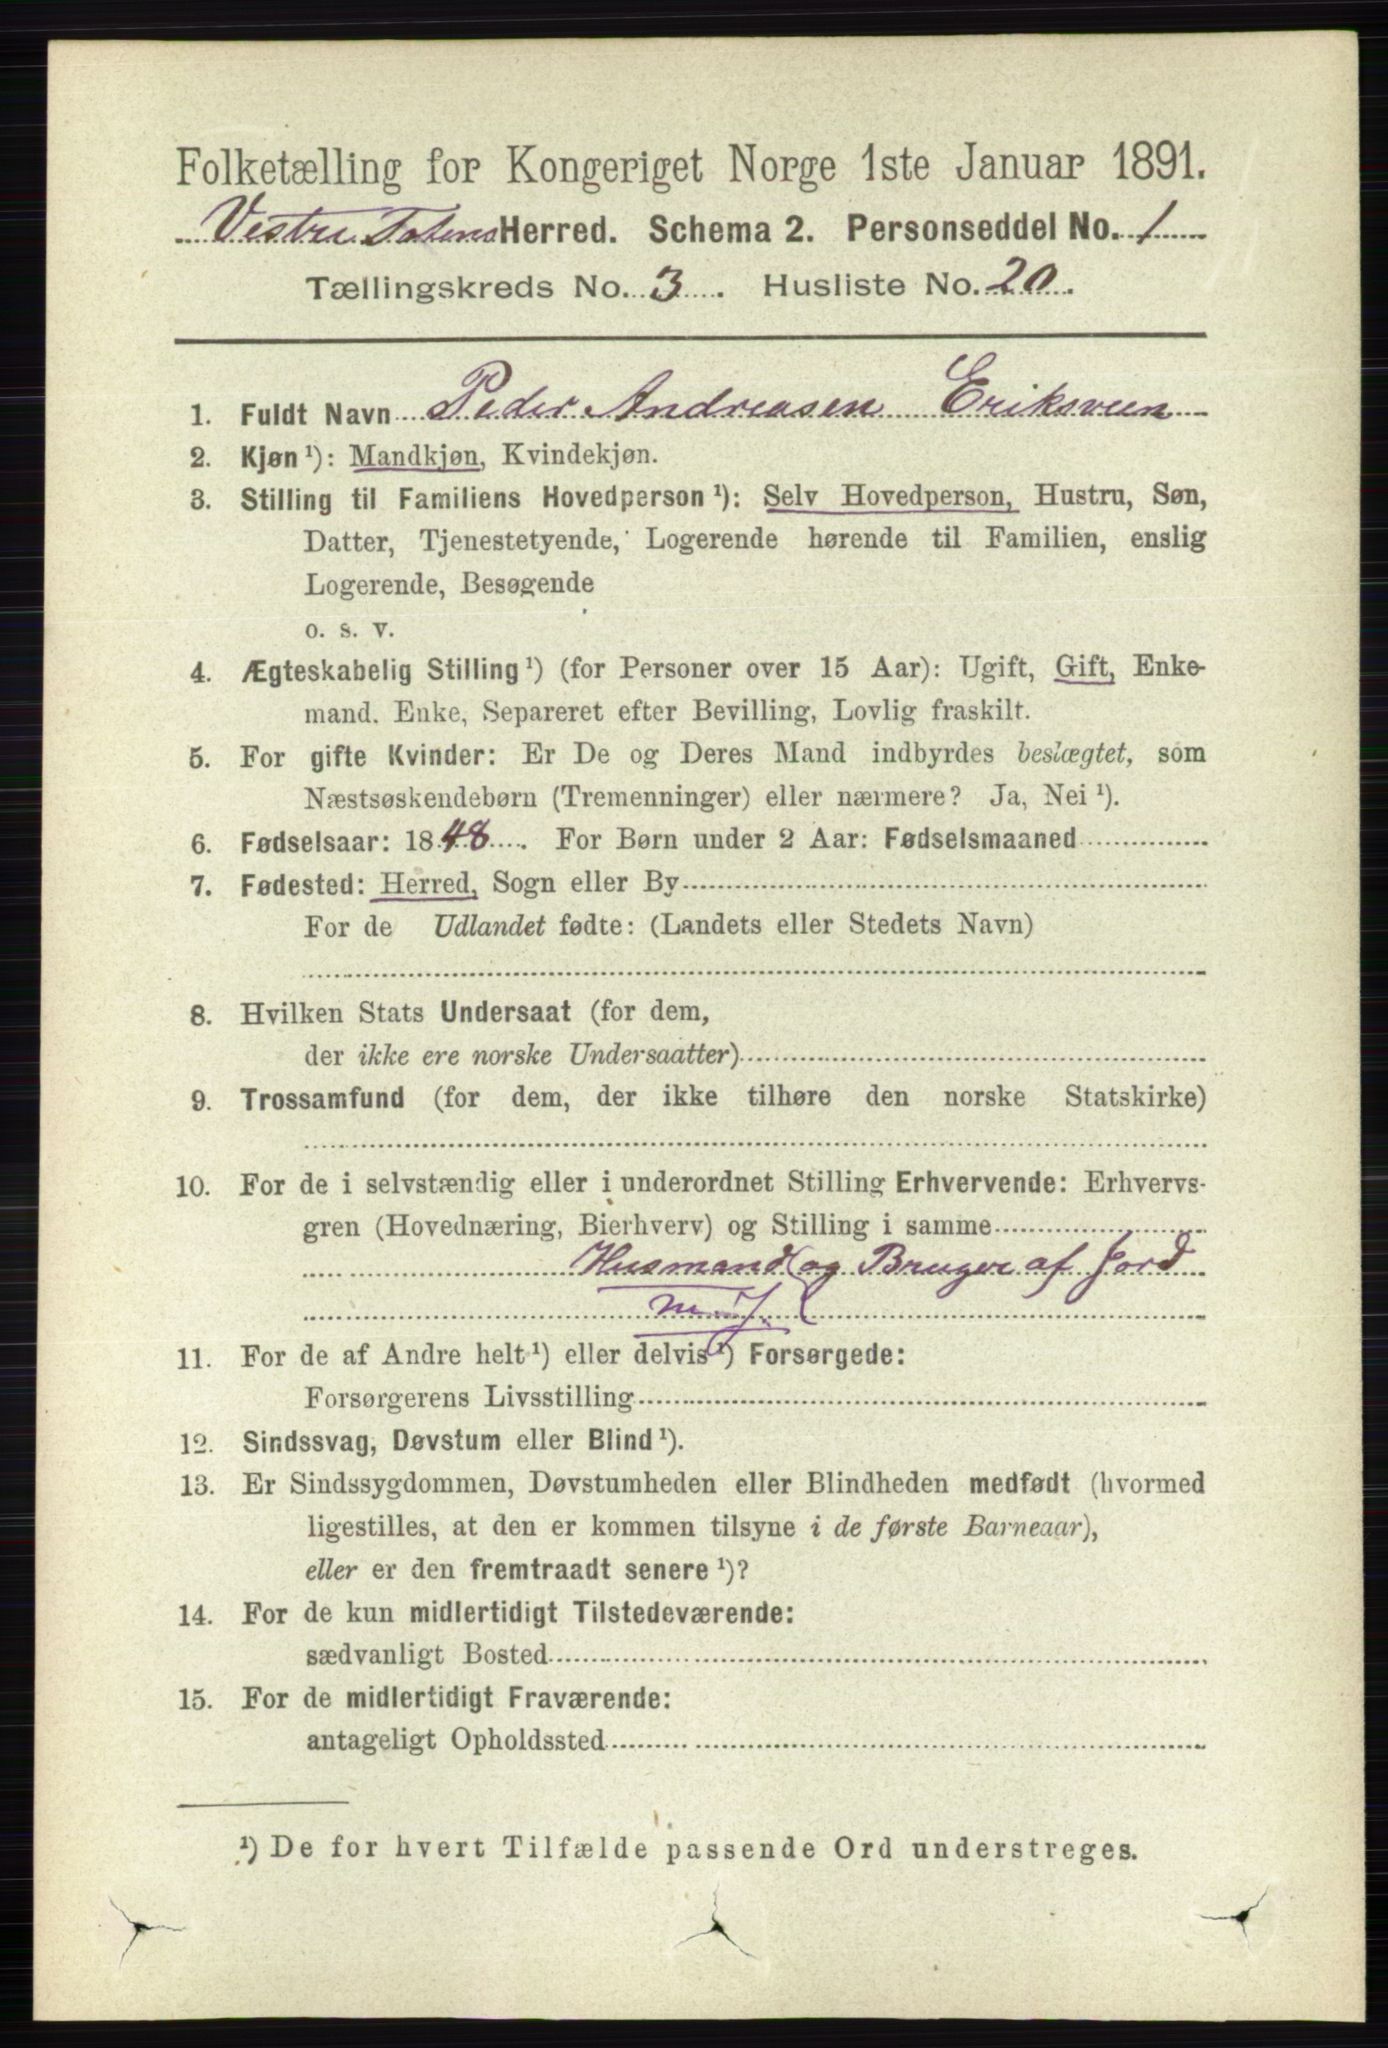 Folketælling for Kongeriget Norge 1ste Januar 1891.
Vestre Totens Herred. Schema 2. Personseddel No. 1
Tællingskreds No. 3. Husliste No. 20.
1. Fuldt Navn Peder Andreasen Eriksveen
2. Kjøn ¹): Mandkjøn, Kvindekjøn.
3. Stilling til Familiens Hovedperson ¹): Selv Hovedperson, Hustru, Søn,
Datter, Tjenestetyende, Logerende hørende til Familien, enslig
Logerende, Besøgende
o. s. v.
4. Ægteskabelig Stilling ¹) (for Personer over 15 Aar): Ugift, Gift, Enke-
mand. Enke, Separeret efter Bevilling, Lovlig fraskilt.
5. For gifte Kvinder: Er De og Deres Mand indbyrdes beslægtet, som
Næstsøskendebørn (Tremenninger) eller nærmere? Ja, Nei ¹).
6. Fødselsaar: 1848. For Børn under 2 Aar: Fødselsmaaned
7. Fødested: Herred, Sogn eller By
For de Udlandet fødte: (Landets eller Stedets Navn)
8. Hvilken Stats Undersaat (for dem,
der ikke ere norske Undersaatter)
9. Trossamfund (for dem, der ikke tilhøre den norske Statskirke)
10. For de i selvstændig eller i underordnet Stilling Erhvervende: Erhvervs-
gren (Hovednæring, Bierhverv) og Stilling i samme
Husmand og Bruger af Jord
m. J.
11. For de af Andre helt ¹) eller delvis ¹) Forsørgede:
Forsørgerens Livsstilling
12. Sindssvag, Døvstum eller Blind ¹).
13. Er Sindssygdommen, Døvstumheden eller Blindheden medfødt (hvormed
ligestilles, at den er kommen tilsyne i de første Barneaar),
eller er den fremtraadt senere ¹)?
14. For de kun midlertidigt Tilstedeværende:
sædvanligt Bosted
15. For de midlertidigt Fraværende:
antageligt Opholdssted
¹) De for hvert Tilfælde passende Ord understreges.